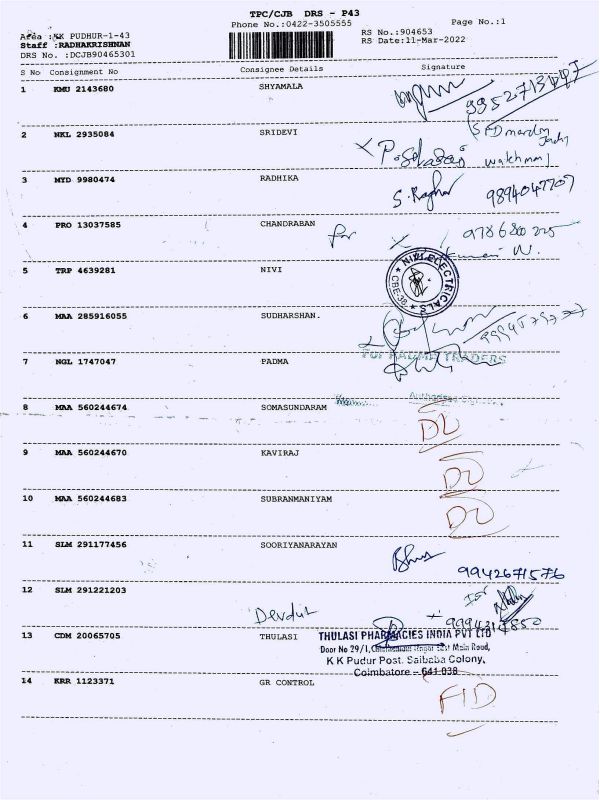 TPC/CJB DRS - P43
Phone No.:0422-3505555 Page No.:1
Area :KK PUDHUR-1-43 RS No.:904653
Staff :RADHAKRISHNAN RS Date:11-Mar-2022
DRS No. :DCJB90465301
S No Consignment No Consignee Details Signature
1 KMU 2143680 SHYAMALA
2 NKL 2935084 SRIDEVI
watchman
3 MYD 9980474 RADHIKA
9894047707
4 PRO 13037585 CHANDRABAN
for
5 TRP 4639281 NIVI
NIVI ELECTRICALS
CBE-38
6 MAA 285916055 SUDHARSHAN.
7 NGL 1747047 PADMA
TRADERS
8 MAA 560244674 SOMASUNDARAM
DL
9 MAA 560244670 KAVIRAJ
DL
10 MAA 560244683 SUBRANMANIYAM
DL
11 SLM 291177456 SOORIYANARAYAN
9942671576
12 SLM 291221203
13 CDM 20065705 THULASI
THULASI PHARMACIES INDIA PVT LTD
Door No 29/1, Main Road,
K K Pudur Post. Saibaba Colony,
Coimbatore - 641 038
14 KRR 1123371 GR CONTROL